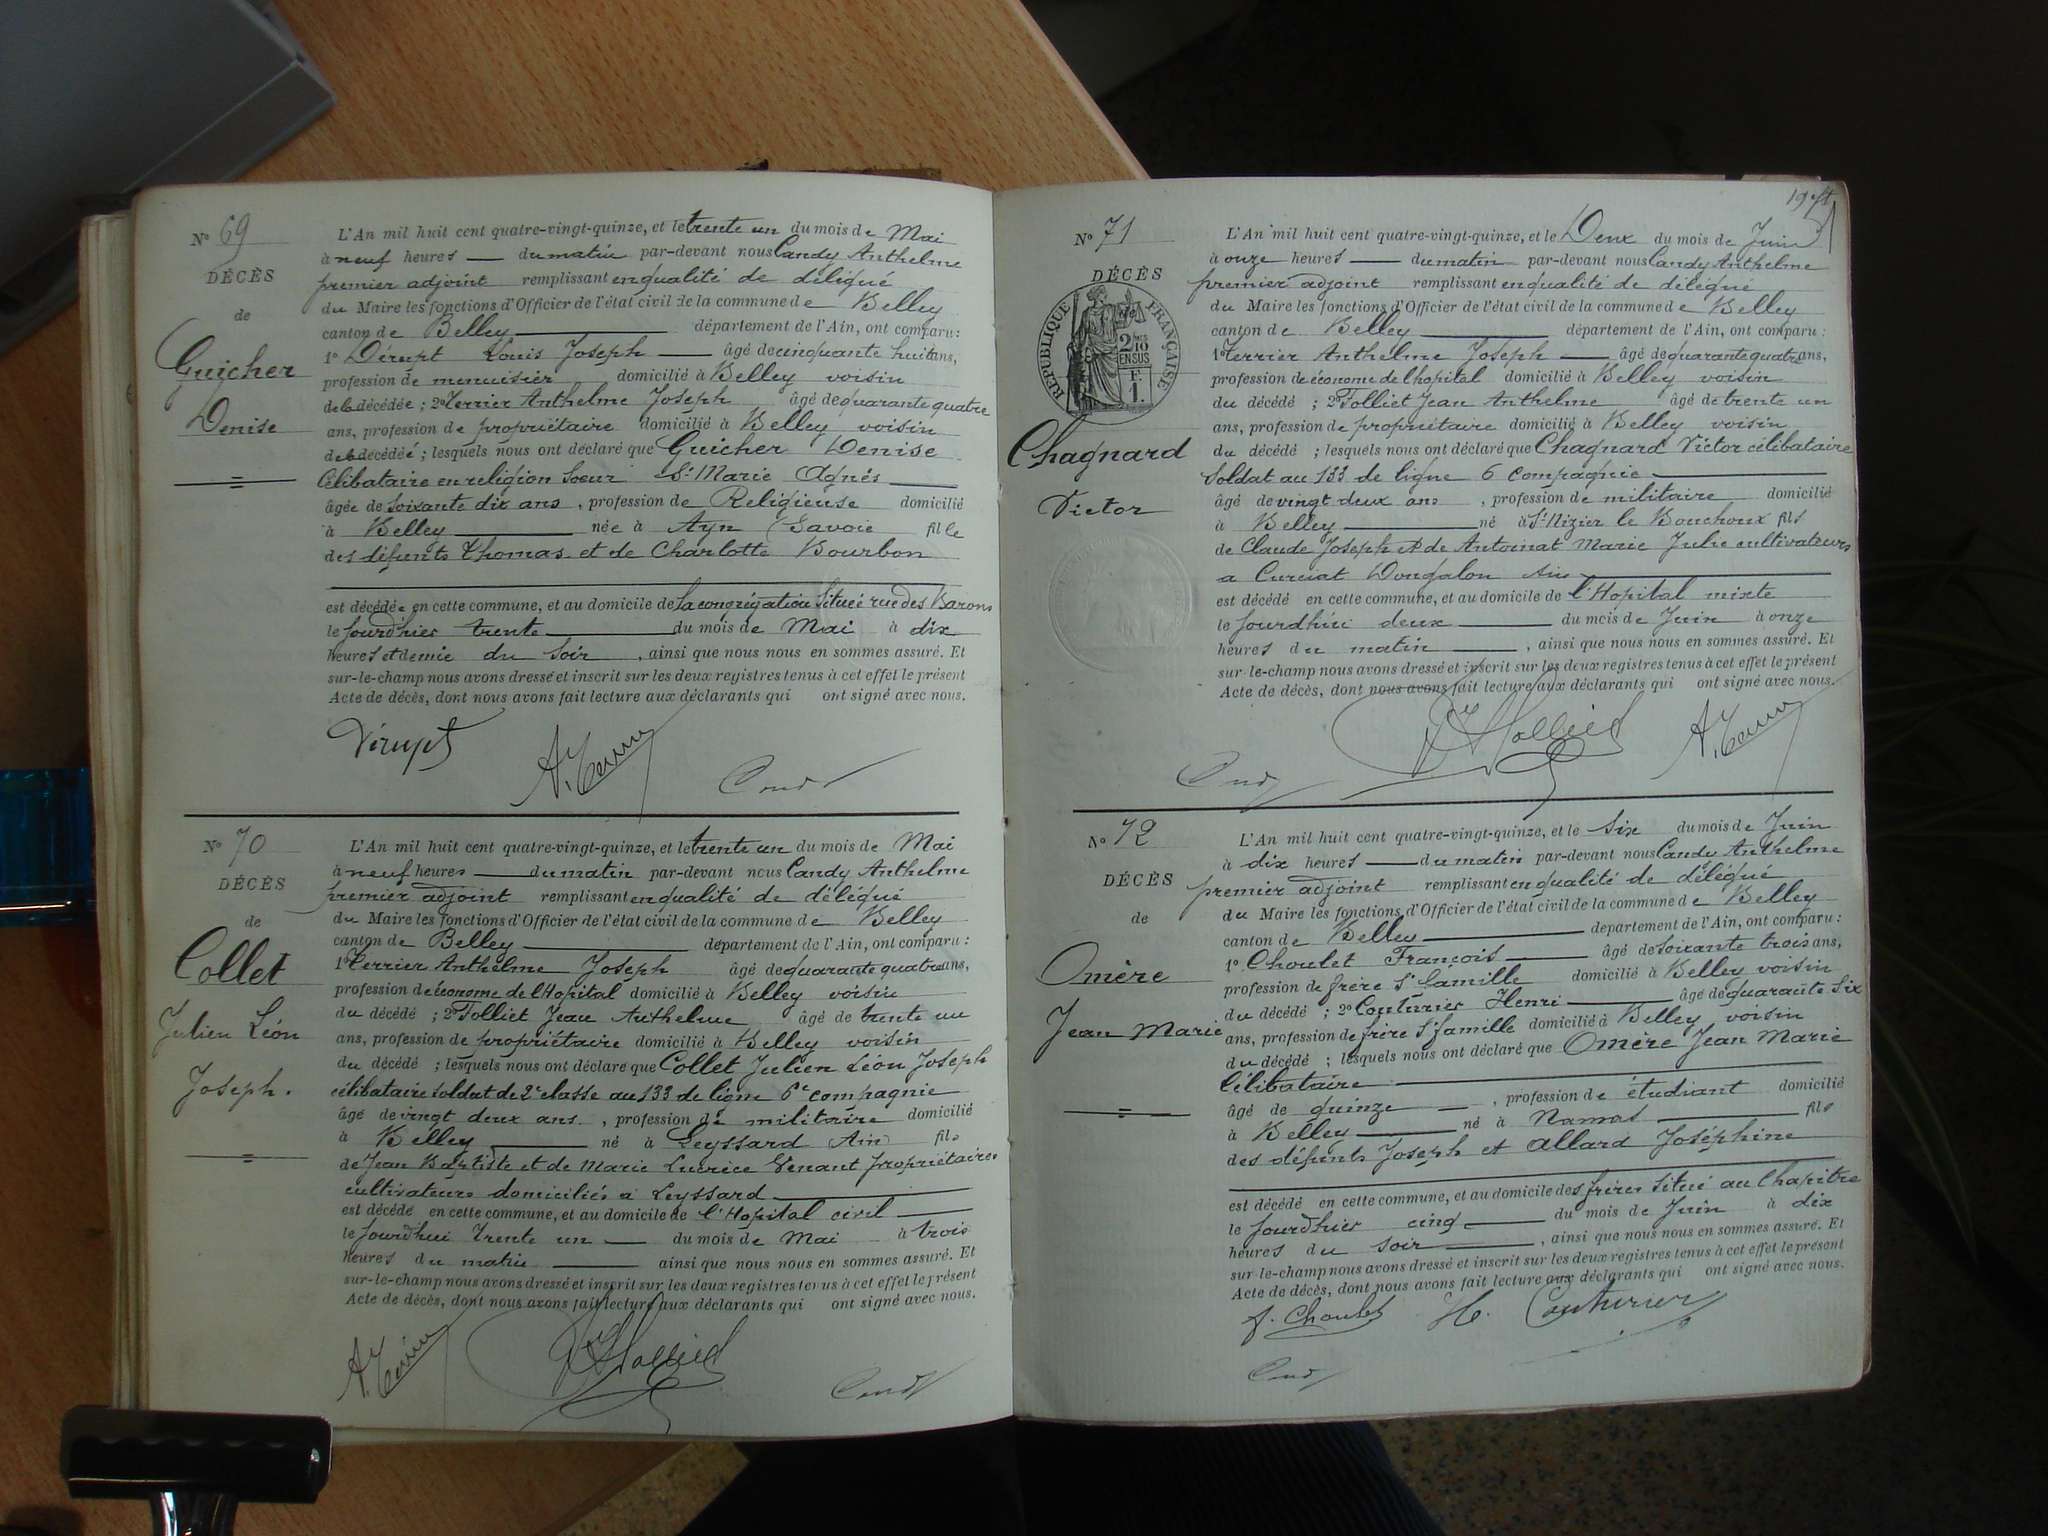 N° 69
DÉCÈS
de
Guicher
Denise
L'An mil huit cent quatre-vingt-quinze, et le trente un du mois de Mai
à neuf heures du matin par-devant nous Candy Anthelme
premier adjoint remplissant en qualité de délégué
du Maire les fonctions d'Officier de l'état civil de la commune de Belley
canton de Belley département de l'Ain, ont comparu :
1° Dérupt Louis Joseph âgé de cinquante huit ans,
profession de menuisier domicilié à Belley voisin
de la décédée ; 2° Terrier Anthelme Joseph âgé de quarante quatre
ans, profession de propriétaire domicilié à Belley voisin
de la décédéé ; lesquels nous ont déclaré que Guicher Denise
Célibataire en religion Soeur St Marie Agnés
âgée de soixante dix ans, profession de Religieuse domicilié
à Belley née à Ayn (Savoie fille
des défunts Thomas et de Charlotte Bourbon
est décédée en cette commune, et au domicile de la congrégation située rue des Barons
le jourd'hier trente du mois de Mai à dix
heures et demie du soir, ainsi que nous nous en sommes assuré. Et
sur-le-champ nous avons dressé et inscrit sur les deux registres tenus à cet effet le présent
Acte de décès, dont nous avons fait lecture aux déclarants qui ont signé avec nous.
Dérupt A. Terrier Candy
N° 70
DÉCÈS
de
Collet
Julien Léon
Joseph.
L'An mil huit cent quatre-vingt-quinze, et le trente un du mois de Mai
à neuf heures du matin par-devant nous Candy Anthelme
premier adjoint remplissant en qualité de délégué
du Maire les fonctions d'Officier de l'état civil de la commune de Belley
canton de Belley département de l'Ain, ont comparu :
1° Terrier Anthelme Joseph âgé de quarante quatre ans,
profession de économe de l'Hopital domicilié à Belley voisin
du décédé ; 2° Tolliet Jean Anthelme âgé de trente un
ans, profession de propriétaire domicilié à Belley voisin
du décédé ; lesquels nous ont déclaré que Collet Julien Léon Joseph
célibataire soldat de 2e classe au 133 de ligne 6e compagnie
âgé de vingt deux ans, profession de militaire domicilié
à Belley né à Leyssard Ain fils
de Jean Baptiste et de Marie Lucrice Venant propriétaires
cultivateurs domiciliés a Leyssard
est décédé en cette commune, et au domicile de l'Hopital civil
le jourd'hui trente un du mois de Mai à trois
heures du matin ainsi que nous nous en sommes assuré. Et
sur-le-champ nous avons dressé et inscrit sur les deux registres tenus à cet effet le présent
Acte de décès, dont nous avons fait lecture aux déclarants qui ont signé avec nous.
A. Terrier Tolliet Candy
N° 71
DÉCÈS
RÉPUBLIQUE FRANÇAISE
2/10 EN SUS
F. 1.
Chagnard
Victor
L'An mil huit cent quatre-vingt-quinze, et le Deux du mois de Juin
à onze heures du matin par-devant nous Candy Anthelme
premier adjoint remplissant en qualité de délégué
du Maire les fonctions d'Officier de l'état civil de la commune de Belley
canton de Belley département de l'Ain, ont comparu :
1° Terrier Anthelme Joseph âgé de quarante quatre ans,
profession de économe de l'hopital domicilié à Belley voisin
du décédé ; 2° Tolliet Jean Anthelme âgé de trente un
ans, profession de propriétaire domicilié à Belley voisin
du décédé ; lesquels nous ont déclaré que Chagnard Victor célibataire
soldat au 133 de ligne 6 compagnie
âgé de vingt deux ans, profession de militaire domicilié
à Belley né à St Nizier le Bouchoux fils
de Claude Joseph et de Antoinat Marie Julie cultivateurs
a Curciat Dongalon Ain
est décédé en cette commune, et au domicile de l'Hopital mixte
le jourd'hui deux du mois de Juin à onze
heures du matin, ainsi que nous nous en sommes assuré. Et
sur-le-champ nous avons dressé et inscrit sur les deux registres tenus à cet effet le présent
Acte de décès, dont nous avons fait lecture aux déclarants qui ont signé avec nous.
Candy Tolliet A. Terrier
N° 72
DÉCÈS
de
Omère
Jean Marie
L'An mil huit cent quatre-vingt-quinze, et le Six du mois de Juin
à dix heures du matin par-devant nous Candy Anthelme
premier adjoint remplissant en qualité de délégué
du Maire les fonctions d'Officier de l'état civil de la commune de Belley
canton de Belley département de l'Ain, ont comparu :
1° Choulet François âgé de soixante trois ans,
profession de frère St famille domicilié à Belley voisin
du décédé ; 2° Couturier Henri âgé de quarante six
ans, profession de frère St famille domicilié à Belley voisin
du décédé ; lesquels nous ont déclaré que Omère Jean Marie
Célibataire
âgé de quinze, profession de étudiant domicilié
à Belley né à Namas fils
des défunts Joseph et Allard Joséphine
est décédé en cette commune, et au domicile des frères situé au Chapitre
le jourd'hier cinq du mois de Juin à dix
heures du soir, ainsi que nous nous en sommes assuré. Et
sur-le-champ nous avons dressé et inscrit sur les deux registres tenus à cet effet le présent
Acte de décès, dont nous avons fait lecture aux déclarants qui ont signé avec nous.
f. Choulet H. Couturier
Candy